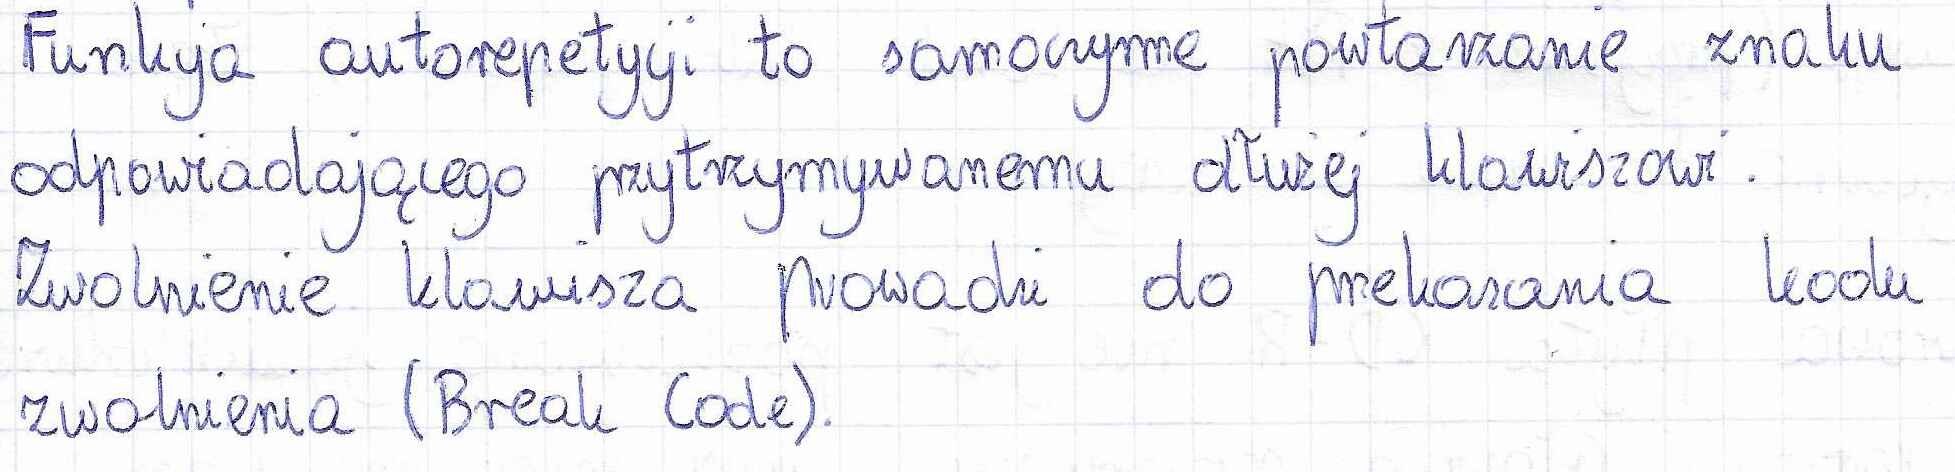 Funkcja autorepetycji to samoczynne powtarzanie znaku
odpowiadającego przytrzymywanemu dłużej klawiszowi.
Zwolnienie klawisza prowadzi do przekazania kodu
zwolnienia (Break Code).